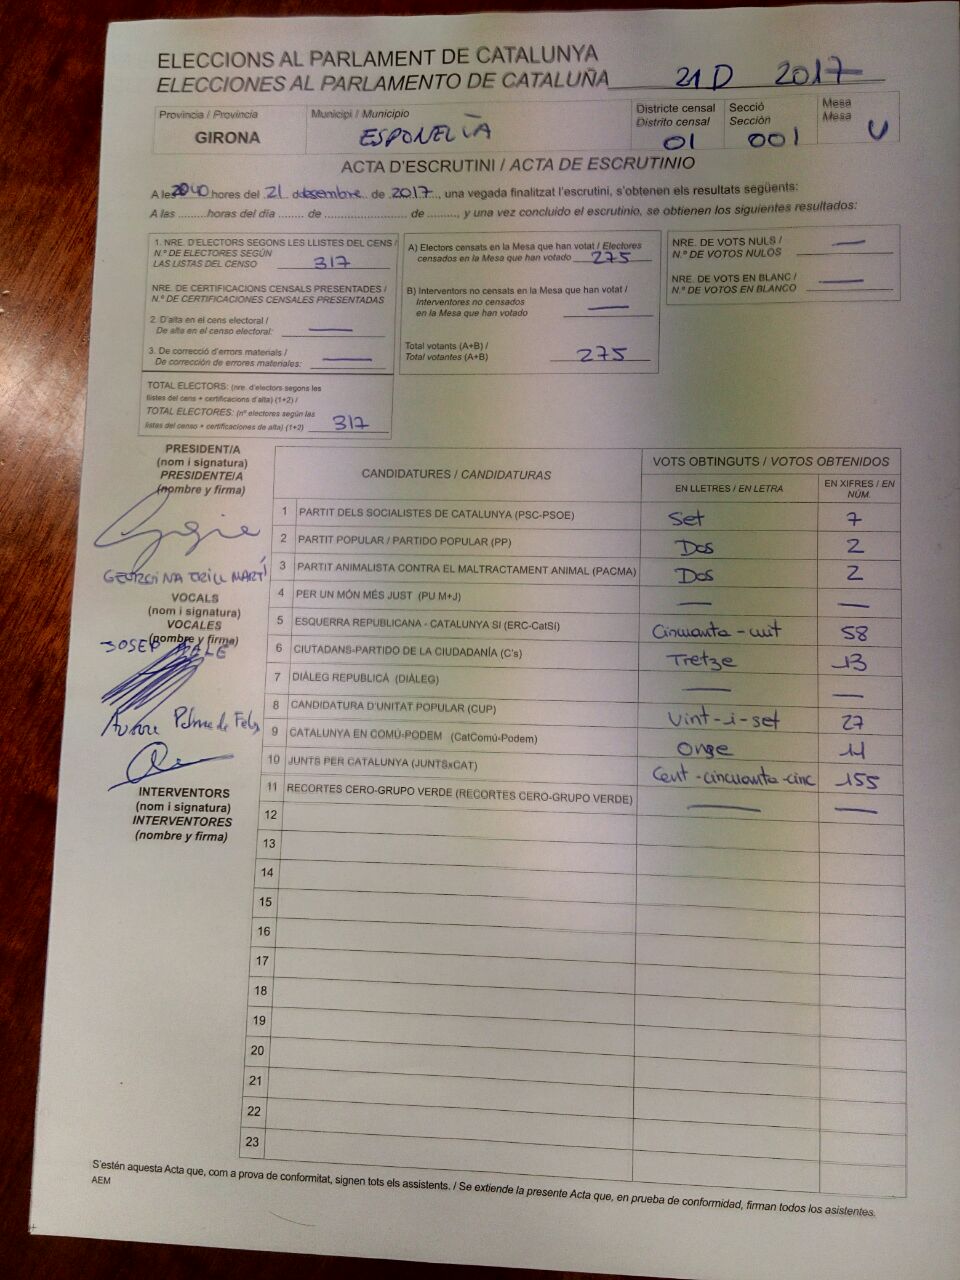 ELECCIONS AL PARLAMENT DE CATALUNYA
ELECCIONES AL PARLAMENTO DE CATALUÑA 21 D 2017
Província / Provincia
GIRONA
Municipi / Municipio
ESPONELLÀ
Districte censal
Distrito censal
01
Secció
Sección
001
Mesa
Mesa
U
ACTA D'ESCRUTINI / ACTA DE ESCRUTINIO
A les 2040 hores del 21 desembre de 2017, una vegada finalitzat l'escrutini, s'obtenen els resultats següents:
A las .........horas del día ....... de ...................... de ........, y una vez concluido el escrutinio, se obtienen los siguientes resultados:
1. NRE. D'ELECTORS SEGONS LES LLISTES DEL CENS /
N.º DE ELECTORES SEGÚN
LAS LISTAS DEL CENSO 317
NRE. DE CERTIFICACIONS CENSALS PRESENTADES /
N.º DE CERTIFICACIONES CENSALES PRESENTADAS
2. D'alta en el cens electoral /
De alta en el censo electoral: —
3. De correcció d'errors materials /
De corrección de errores materiales: —
TOTAL ELECTORS: (nre. d'electors segons les
llistes del cens + certificacions d'alta) (1+2) /
TOTAL ELECTORES: (nº electores según las
listas del censo + certificaciones de alta) (1+2) 317
A) Electors censats en la Mesa que han votat / Electores
censados en la Mesa que han votado 275
B) Interventors no censats en la Mesa que han votat /
Interventores no censados
en la Mesa que han votado —
Total votants (A+B) /
Total votantes (A+B) 275
NRE. DE VOTS NULS /
N.º DE VOTOS NULOS —
NRE. DE VOTS EN BLANC /
N.º DE VOTOS EN BLANCO —
PRESIDENT/A
(nom i signatura)
PRESIDENTE/A
(nombre y firma)
MARTÍ
VOCALS
(nom i signatura)
VOCALES
(nombre y firma)
JOSEP
INTERVENTORS
(nom i signatura)
INTERVENTORES
(nombre y firma)
CANDIDATURES / CANDIDATURAS
VOTS OBTINGUTS / VOTOS OBTENIDOS
EN LLETRES / EN LETRA
EN XIFRES / EN
NÚM.
1 PARTIT DELS SOCIALISTES DE CATALUNYA (PSC-PSOE) Set 7
2 PARTIT POPULAR / PARTIDO POPULAR (PP) Dos 2
3 PARTIT ANIMALISTA CONTRA EL MALTRACTAMENT ANIMAL (PACMA) Dos 2
4 PER UN MÓN MÉS JUST (PU M+J) — —
5 ESQUERRA REPUBLICANA - CATALUNYA SI (ERC-CatSí) Cincuanta-vuit 58
6 CIUTADANS-PARTIDO DE LA CIUDADANÍA (C's) Tretze 13
7 DIÀLEG REPUBLICÀ (DIÀLEG) — —
8 CANDIDATURA D'UNITAT POPULAR (CUP) Vint-i-set 27
9 CATALUNYA EN COMÚ-PODEM (CatComú-Podem) Onze 11
10 JUNTS PER CATALUNYA (JUNTSxCAT) Cent-cincuanta-cinc 155
11 RECORTES CERO-GRUPO VERDE (RECORTES CERO-GRUPO VERDE) — —
12
13
14
15
16
17
18
19
20
21
22
23
S'estén aquesta Acta que, com a prova de conformitat, signen tots els assistents. / Se extiende la presente Acta que, en prueba de conformidad, firman todos los asistentes.
AEM